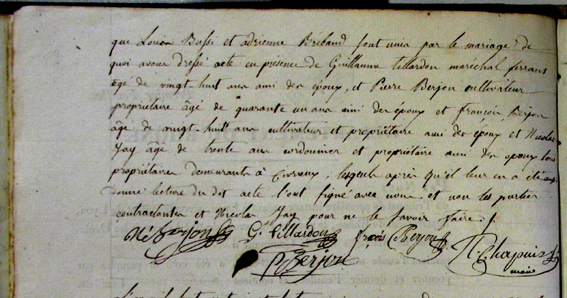 que Louison Bussi et adrienne Briband sont unis par le mariage de
quoi avons dressé acte en presence de Guillaume tillardon marechal ferrant
âgé de vingt huit ans ami des époux, et Pierre Berjon cultivateur
propriétaire âgé de quarante un ans ami des époux et françois Berjon
âgé de vingt huit ans cultivateur et propriétaire ami des époux et Nicolas
Jay âgé de trente ans cordonnier et propriétaire ami des époux tous
propriétaires demeurants à Civrieux ; lesquels après qu'il leur en a été
donné lecture du dit acte l'ont signé avec nous et non les parties
contractantes et Nicolas Jay pour ne le savoir faire ./.
Berjon G. Tillardon frois Berjon N. Chapuis
P Berjon maire